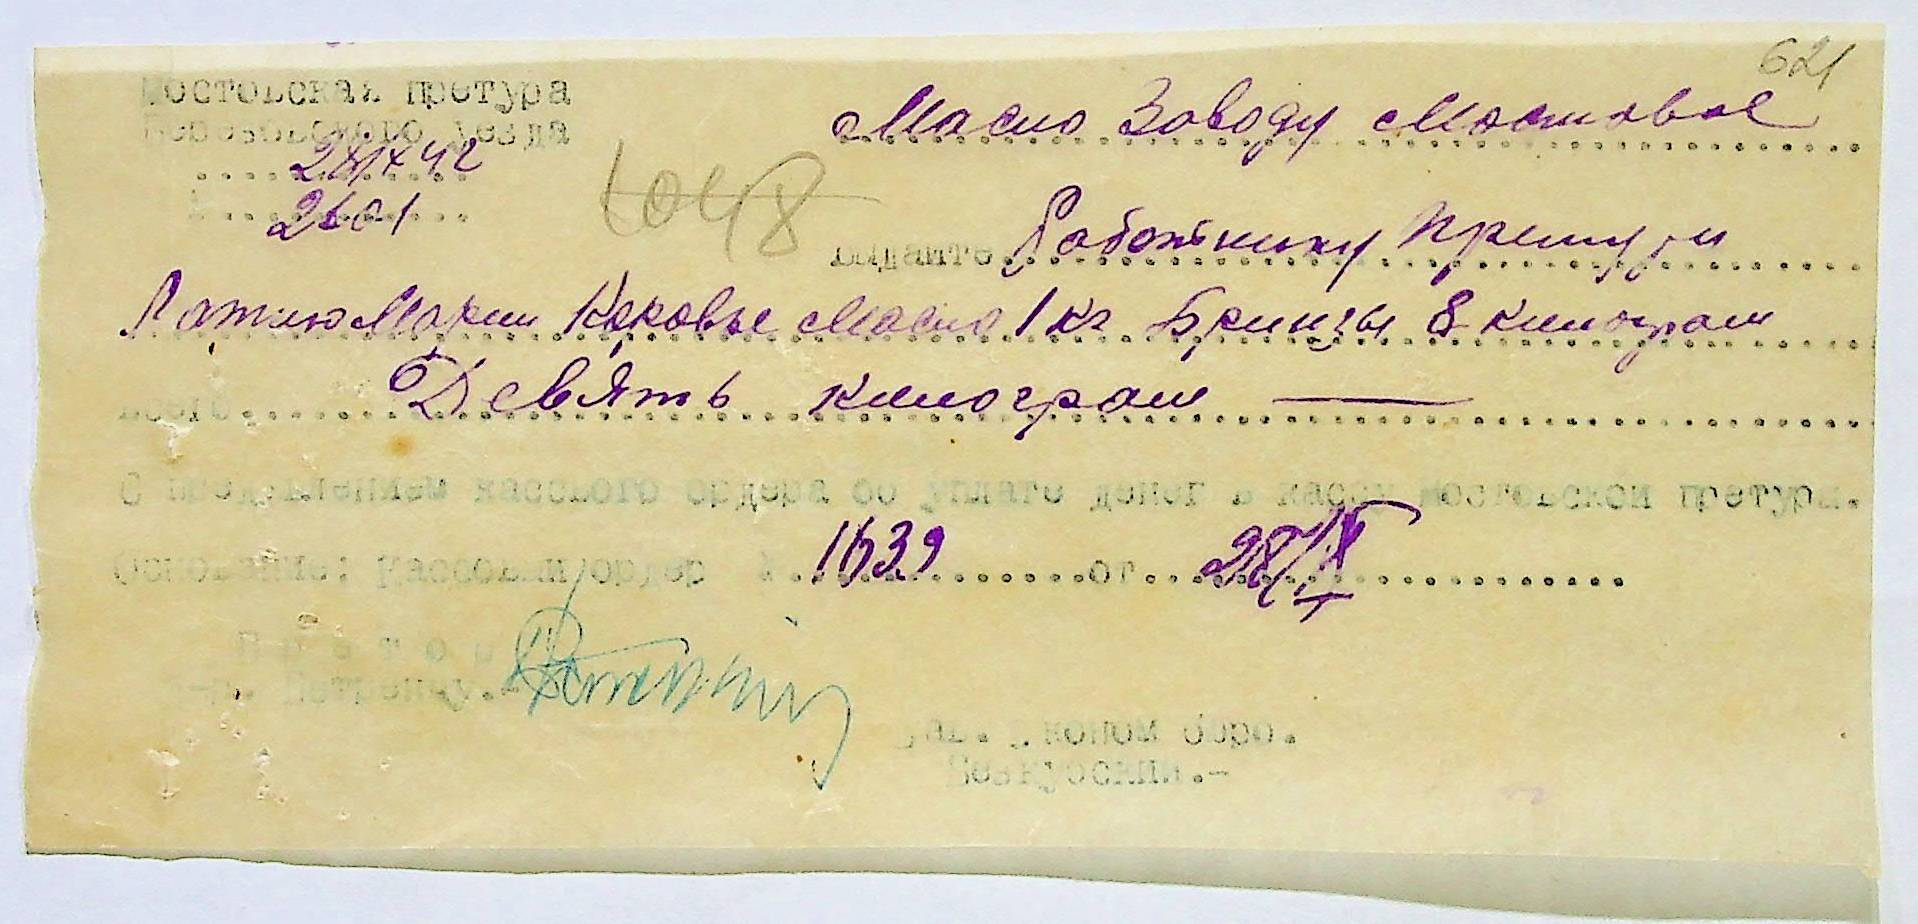 621
Мостовская претура
Березовского уезда
Масло Заводу Мостовое
28/IX 42
2601
1048
выдайте Работнику Претуры
Марии Коровье Масло 1 кг. Бринзы 8 килограм
всего. Девять килограм —
С пред'явлением кассового ордера об уплате денег в кассу Мостовской претуры.
Основание: Кассовый ордер №.1639 от 28/IX
Претор
Петренцу.-
Зав. Эконом бюро.